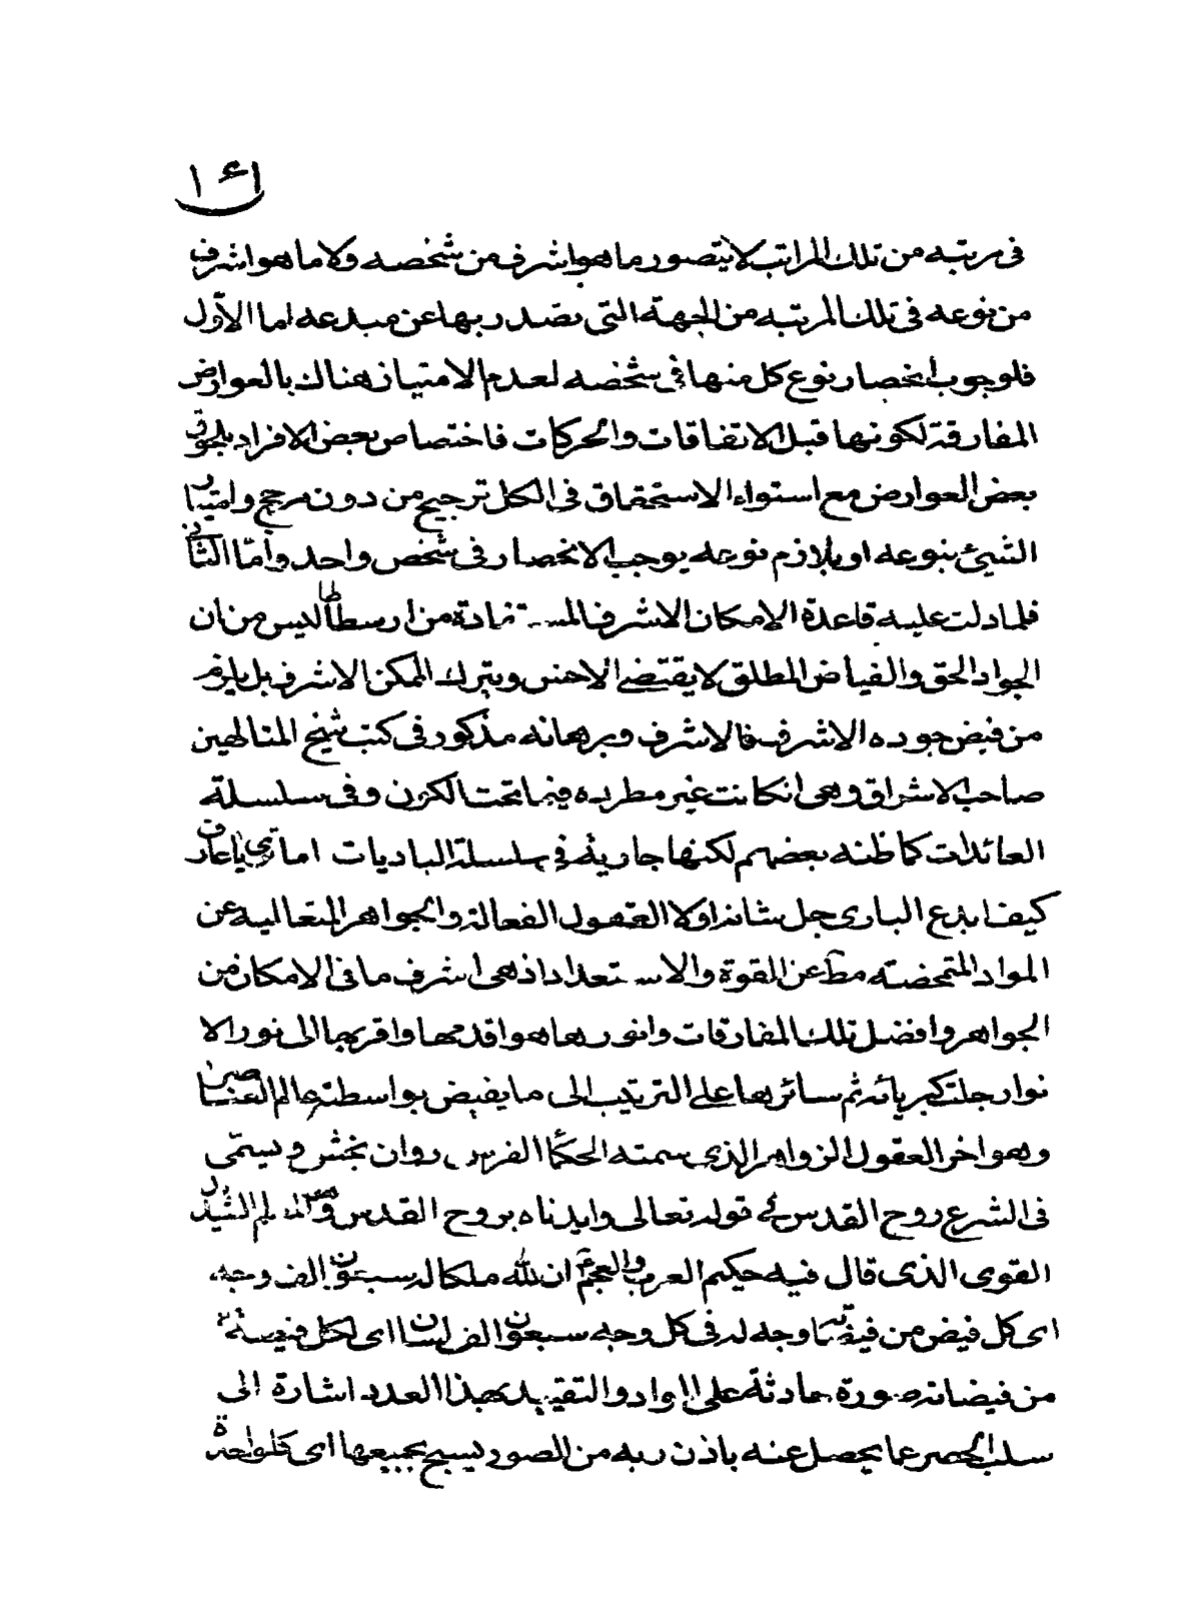 ١٤١
فى مرتبه من تلك المراتب لا يتصور ما هو اشرف من شخصه ولا ما هو اشرف
من نوعه فى تلك المرتبه من الجهة التى يصدر بها عن مبدعه اما الاول
فلوجوب انحصار نوع كل منها فى شخصه لعدم الامتياز هناك بالعوارض
المفارقة لكونها قبل الاتفاقات والحركات فاختصاص بعض الافراد بلحوق
بعض العوارض مع استواء الاستحقاق فى الكل ترجيح من دون مرجح وامتياز
الشيئ بنوعه او بلازم نوعه يوجب الانحصار فى شخص واحد وامّا الثانى
فلما دلت عليه قاعدة الامكان الاشرف المستفادة من ارسطاطاليس من ان
الجواد الحق والفياض المطلق لا يقتضى الاخس ويترك الممكن الاشرف بل يلزم
من فيض جوده الاشرف فالاشرف وبرهانه مذكور فى كتب شيخ المتالهين
صاحب الاشراق وهى انكانت غير مطرده فيما تحت الكون وفى سلسلة
العائدات كما ظنه بعضهم لكنها جارية فى سلسلة الباديات اما ترى يا عارف
كيف ابدع البارى جل شانه اولا العقول الفعالة والجواهر المتعالية عن
المواد المتمحضته مط عن القوة والاستعداد اذ هى اشرف ما فى الامكان من
الجواهر وافضل تلك المفارقات وانورها هو اقدمها واقربها الى نور الا
نوار جلت كبريائه ثم سائرها على الترتيب الى ما يفيض بواسطته عالم العناصر
وهو اخر العقول الزواهر الذى سمته الحكما الفرس روان بخش ويسمّى
فى الشرع روح القدس فى قوله تعالى وايدناه بروح القدس المعلم الشديد
القوى الذى قال فيه حكيم العرب والعجم ان لله ملكا له سبعون الف وجه
اى كل فيض من فيضه وجه له فى كل وجه سبعون الف لسان اى لكل فيضه
من فيضاته صورة حادثة على المواد والتقييد بهذا العدد اشارة الى
سلب الحصر عما يحصل عنه باذن ربه من الصور يسبح بجميعها اى كل واحدة